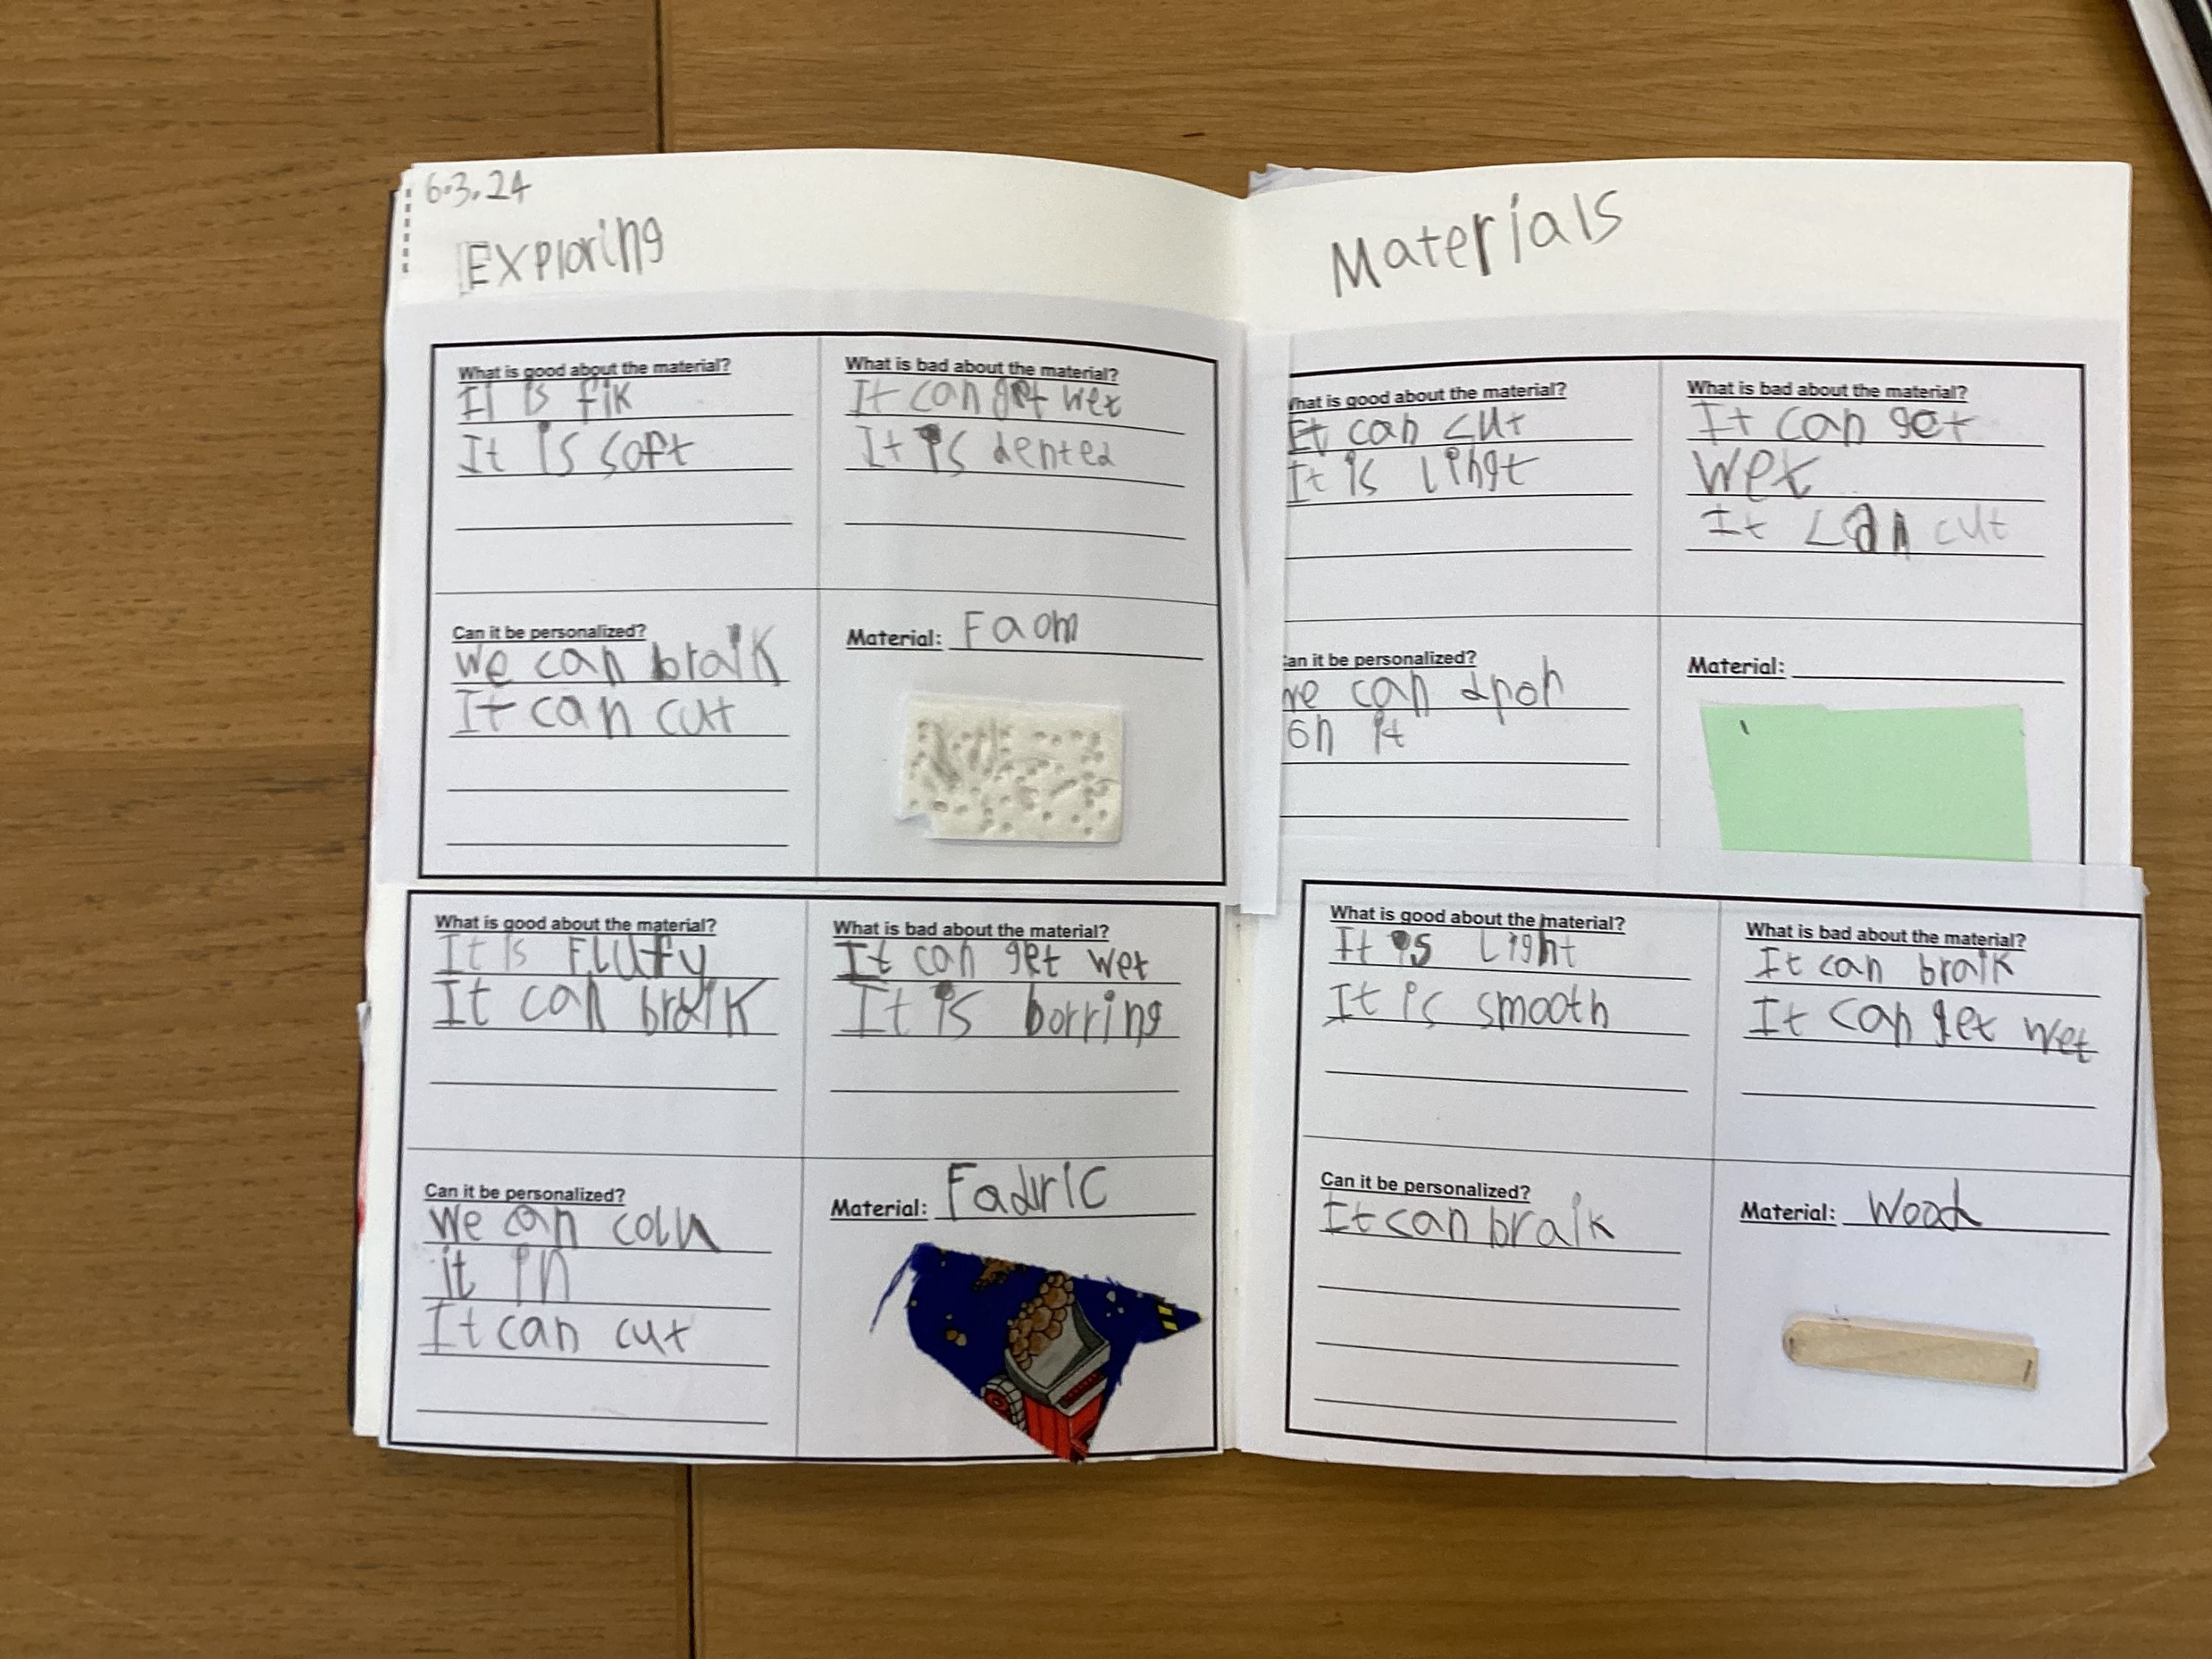 6.3.24
Exploring
Materials
What is good about the material?
It is fik
It is soft
What is bad about the material?
It can get wet
It is dented
Can it be personalized?
we can braik
It can cut
Material: Faom
What is good about the material?
It can cut
It is lihgt
What is bad about the material?
It can get
wet
It can cut
an it be personalized?
we can dpoh
on it
Material:
What is good about the material?
It is Flufy
It can braik
What is bad about the material?
It can get wet
It is borring
Can it be personalized?
We can
it in
It can cut
Material: Fadric
What is good about the material?
It is Light
It is smooth
What is bad about the material?
It can braik
It can get wet
Can it be personalized?
It can braik
Material: Wood